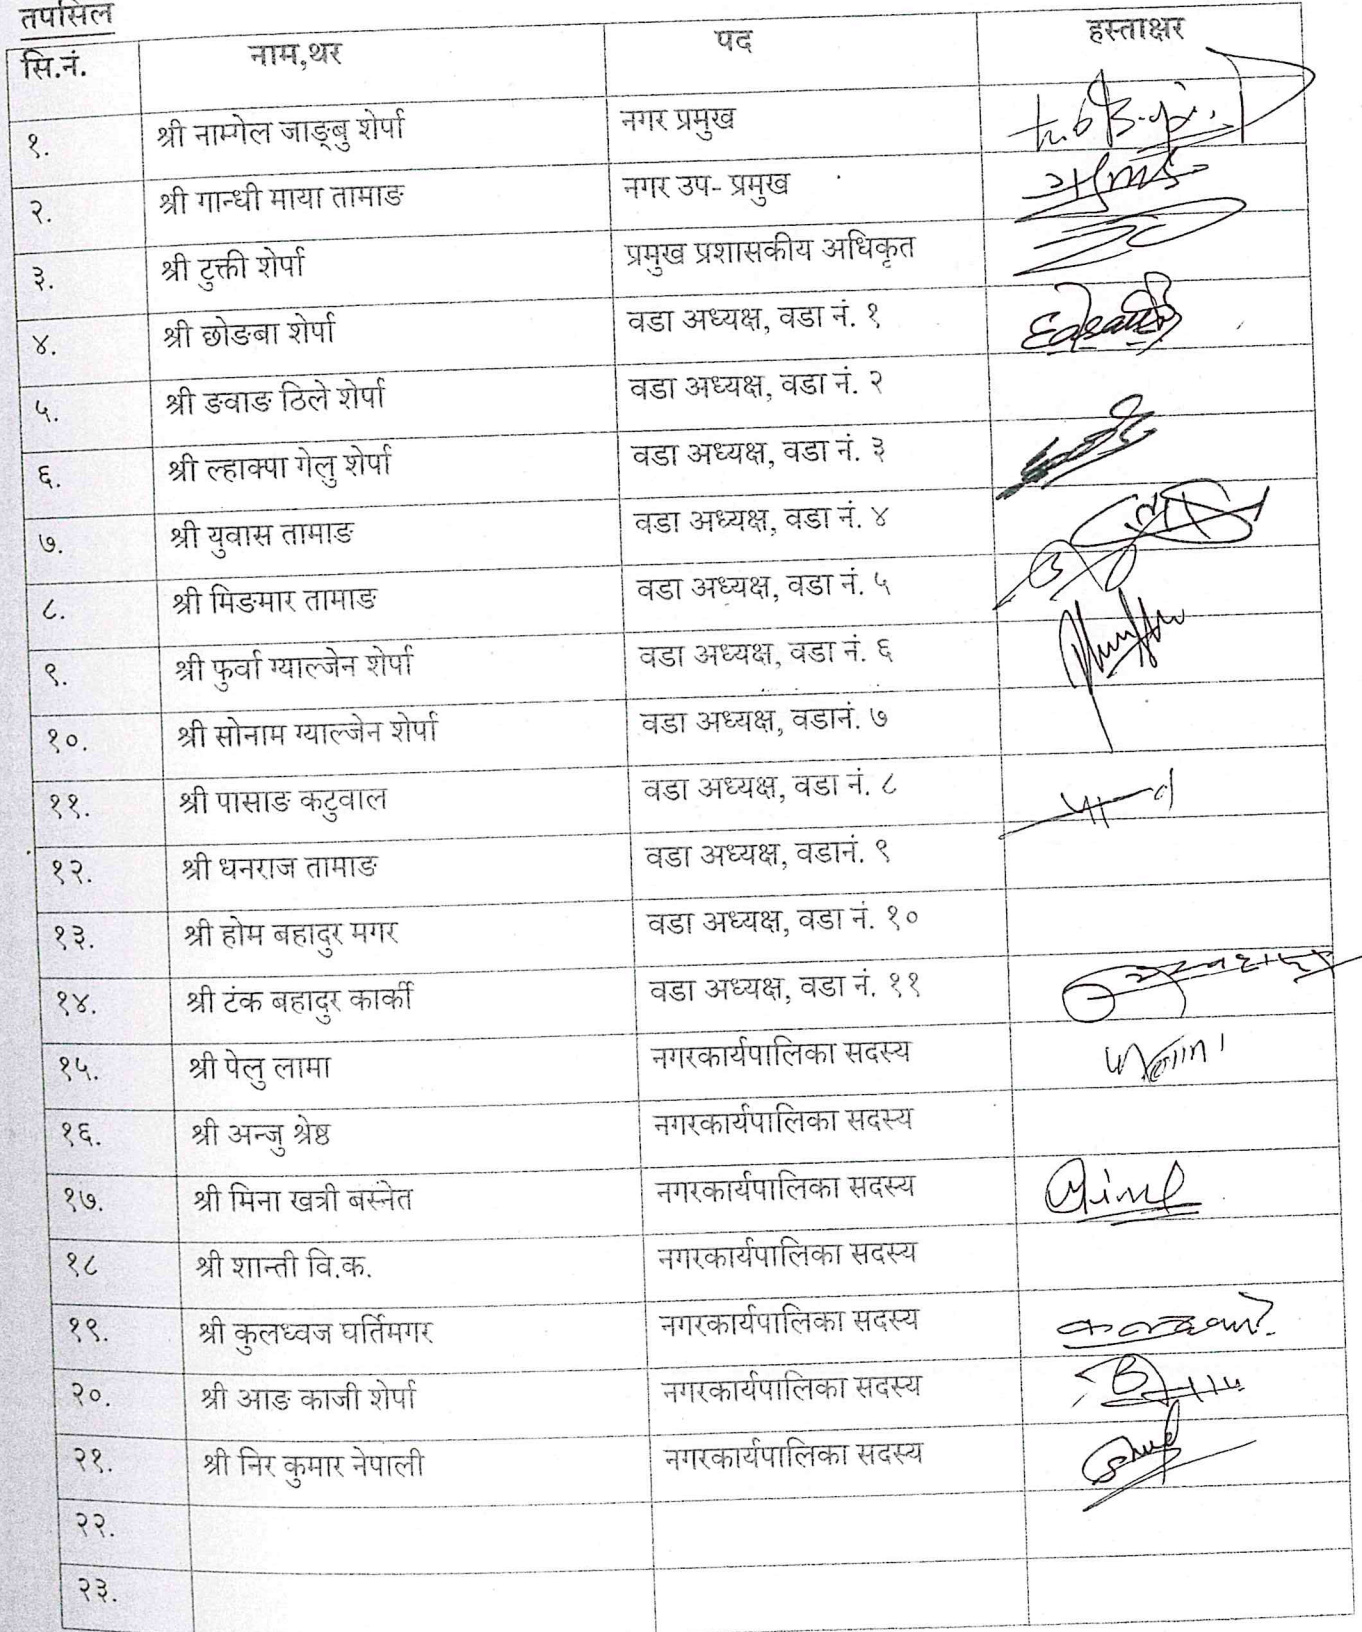 तपसिल
सि.नं. नाम,थर पद हस्ताक्षर
१. श्री नाम्गेल जाङ्बु शेर्पा नगर प्रमुख
२. श्री गान्धी माया तामाङ नगर उप- प्रमुख
३. श्री टुक्ती शेर्पा प्रमुख प्रशासकीय अधिकृत
४. श्री छोङबा शेर्पा वडा अध्यक्ष, वडा नं. १
५. श्री ङवाङ ठिले शेर्पा वडा अध्यक्ष, वडा नं. २
६. श्री ल्हाक्पा गेलु शेर्पा वडा अध्यक्ष, वडा नं. ३
७. श्री युवास तामाङ वडा अध्यक्ष, वडा नं. ४
८. श्री मिङमार तामाङ वडा अध्यक्ष, वडा नं. ५
९. श्री फुर्वा ग्याल्जेन शेर्पा वडा अध्यक्ष, वडा नं. ६
१०. श्री सोनाम ग्याल्जेन शेर्पा वडा अध्यक्ष, वडानं. ७
११. श्री पासाङ कटुवाल वडा अध्यक्ष, वडा नं. ८
१२. श्री धनराज तामाङ वडा अध्यक्ष, वडानं. ९
१३. श्री होम बहादुर मगर वडा अध्यक्ष, वडा नं. १०
१४. श्री टंक बहादुर कार्की वडा अध्यक्ष, वडा नं. ११
१५. श्री पेलु लामा नगरकार्यपालिका सदस्य
१६. श्री अन्जु श्रेष्ठ नगरकार्यपालिका सदस्य
१७. श्री मिना खत्री बस्नेत नगरकार्यपालिका सदस्य
१८ श्री शान्ती वि.क. नगरकार्यपालिका सदस्य
१९. श्री कुलध्वज घर्तिमगर नगरकार्यपालिका सदस्य
२०. श्री आङ काजी शेर्पा नगरकार्यपालिका सदस्य
२१. श्री निर कुमार नेपाली नगरकार्यपालिका सदस्य
२२.
२३.